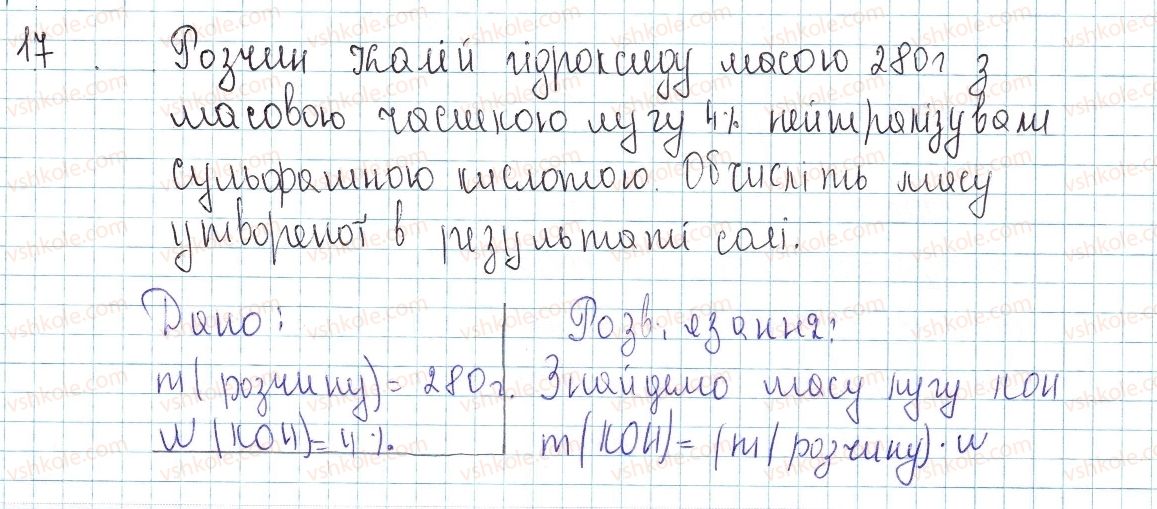 17. Розчин калій гідроксиду масою 280 г з
масовою часткою лугу 4% нейтралізували
сульфатною кислотою. Обчисліть масу
утвореної в результаті солі.
Дано:
m(розчину) = 280 г.
W(KOH) = 4%.
Розв'язання:
Знайдемо масу лугу KOH
m(KOH) = (m(розчину)·w